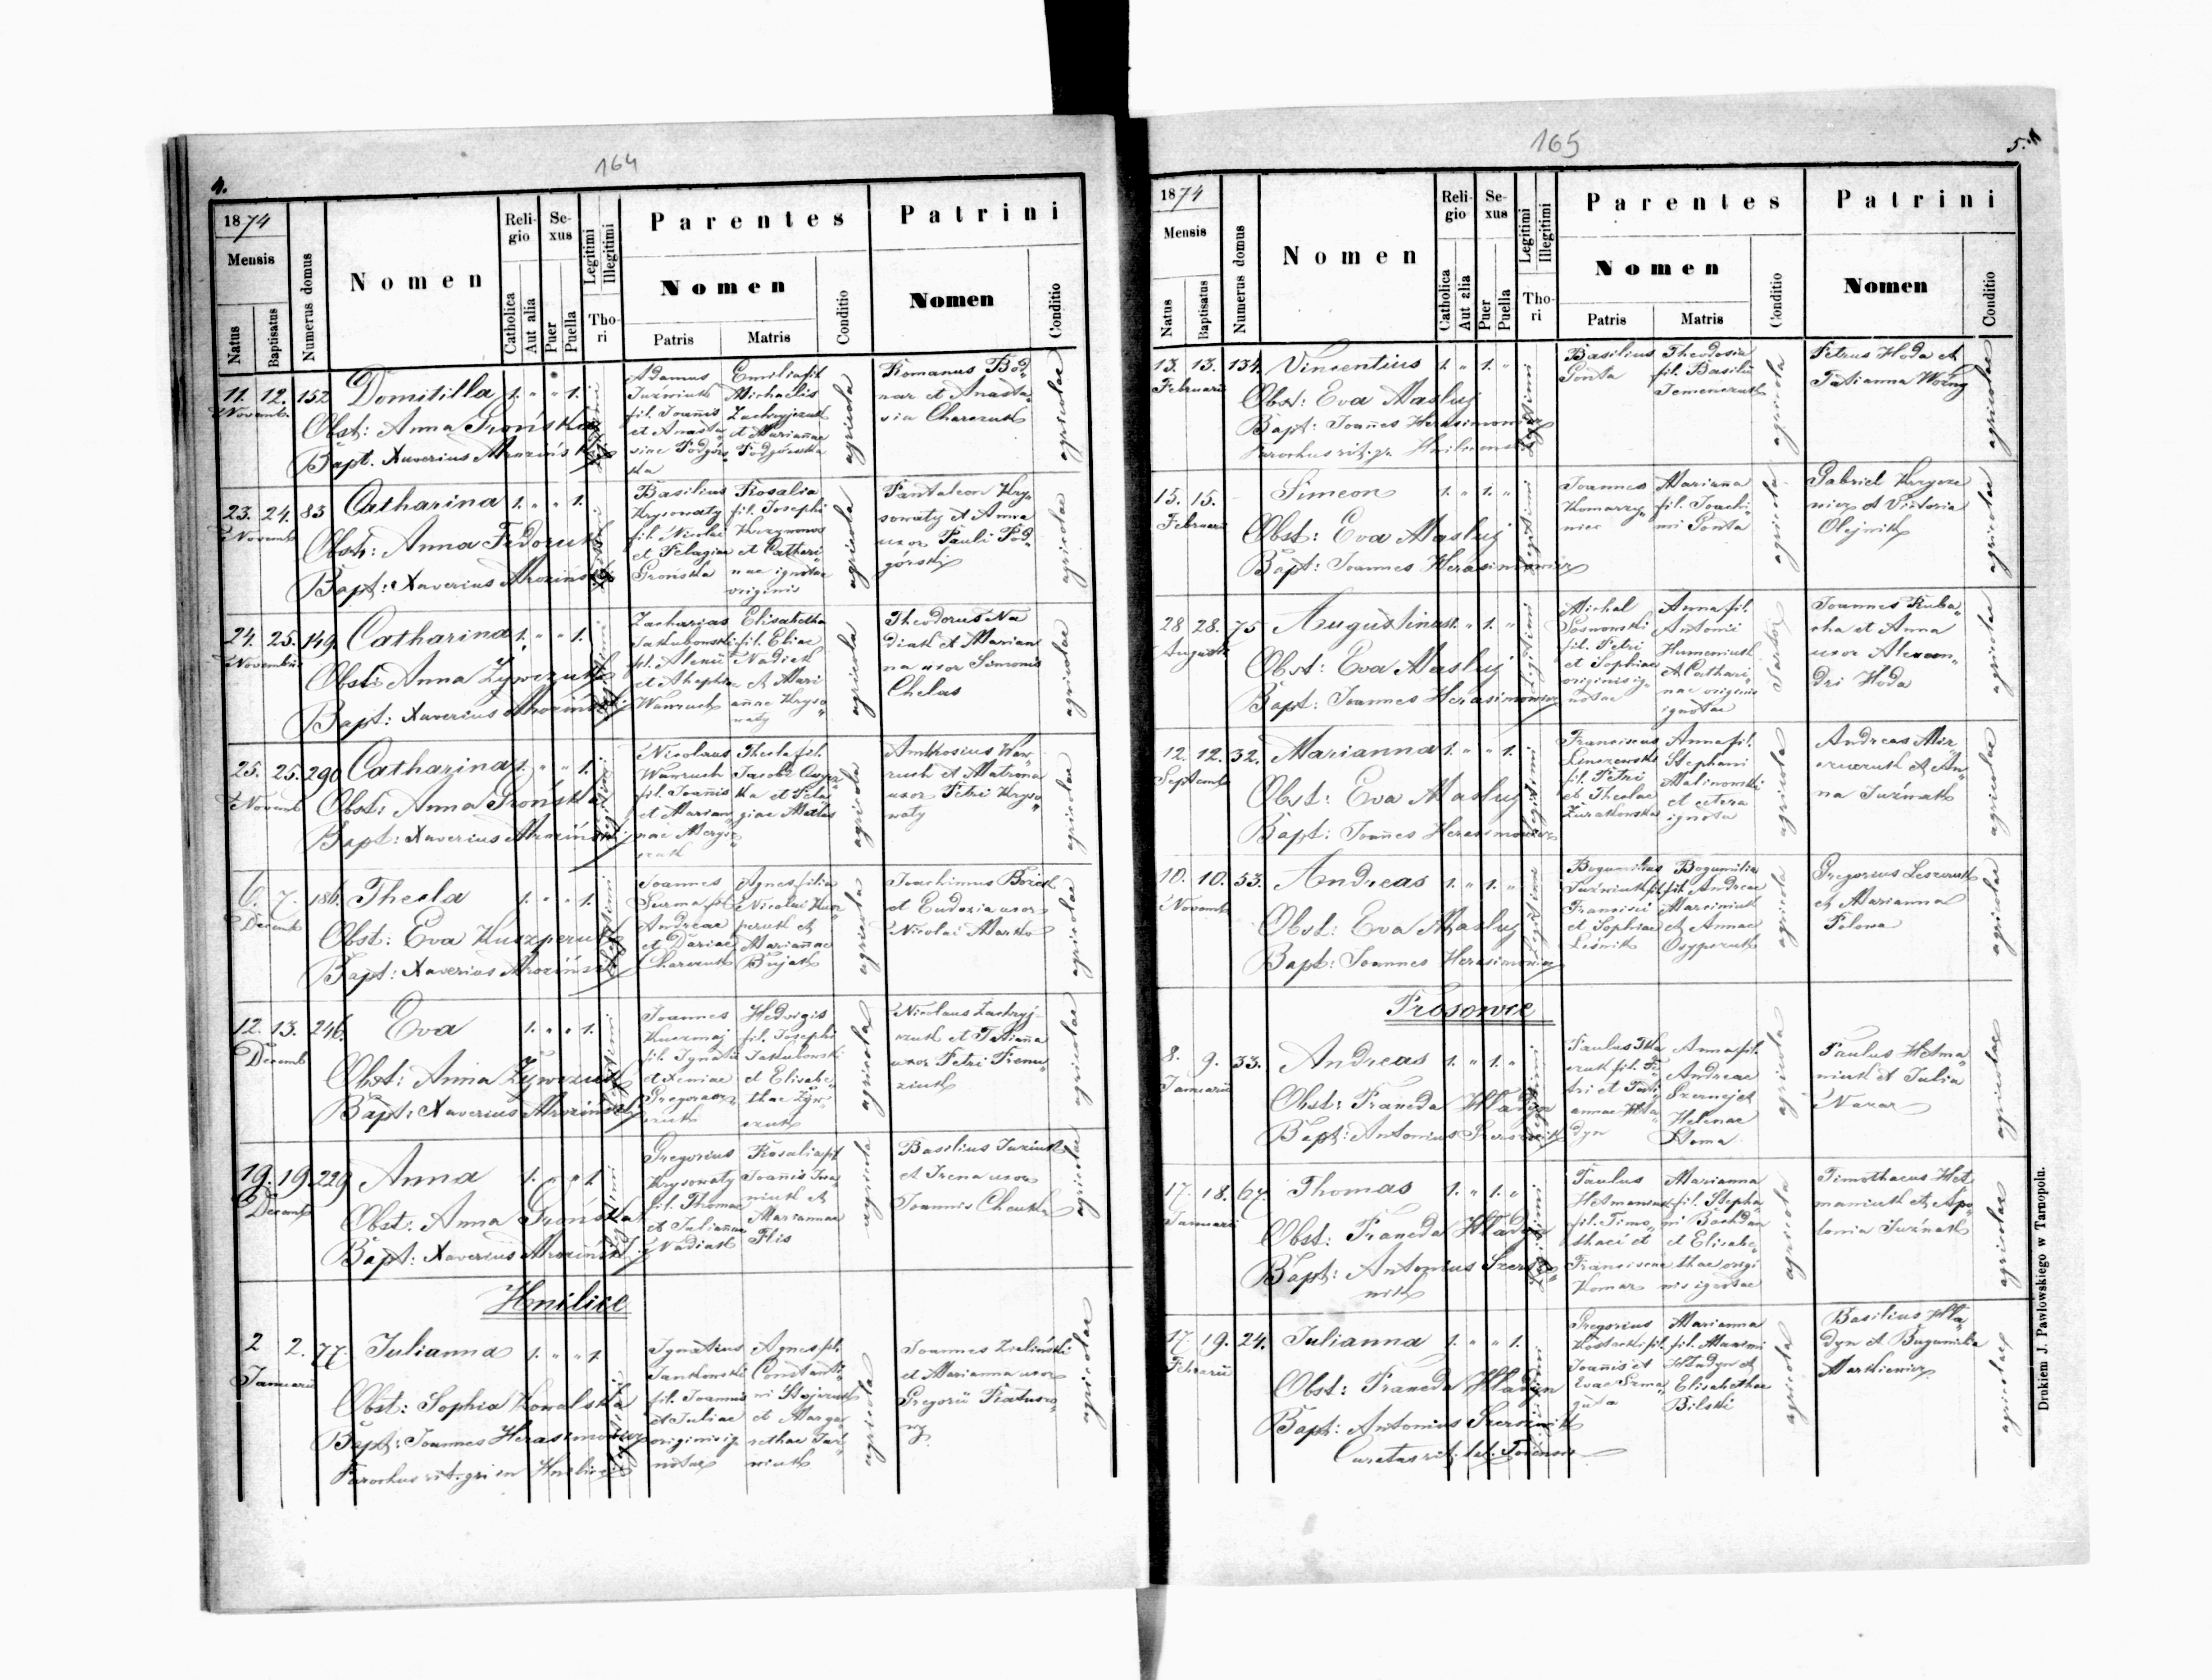 164
4.
1874
Mensis
Natus
Baptisatus
Numerus domus
Nomen
Religio
Catholica
Aut alia
Sexus
Puer
Puella
Legitimi
Illegitimi
Thori
Parentes
Nomen
Patris
Matris
Conditio
Patrini
Nomen
Conditio
11. 12. 152 Domitilla 1. " " 1.
Novemb.
Obst: Anna Grońska
Bapt. Xaverius Mroziński
Legitimi
Adamus
Juźwiuk
fil. Joannis
et Anasta„
siae Podgórs„
ka
Emilia fil
Michaelis
Zachryjczuk
et Mariannae
Podgórska
agricola
Romanus Bod„
nar et Anasta„
sia Charczuk
agricolae
23. 24. 83 Catharina 1. " " 1.
Novemb
Obst: Anna Fedoruk
Bapt: Xaverius Mroziński
Legitimi
Basilius
Krysowaty
fil. Nicolai
et Pelagiae
Grońska
Rosalia
fil. Josephi
et Cathari„
nae ignotae
originis
agricola
Pantaleon Kry„
sowaty et Anna
uxor Pauli Pod„
górski
agricolae
24. 25. 149 Catharina 1. " " 1.
Novembris
Obst: Anna Żywczuk
Bapt: Xaverius Mroziński
Legitimi
Zacharias
Jakubowski
fil. Alexii
Wawruch
Elisabetha
fil. Eliae
Nadiak
et Mari
annae Kryso„
waty
agricola
Theodorus Na
diak et Marian
na uxor Simonis
Chelus
agricolae
25. 25. 290 Catharina 1. " " 1.
Novemb
Obst: Anna Grońska
Bapt: Xaverius Mroziński
Legitimi
Nicolaus
Wawruch
fil. Joannis
et Marian„
nae
Thecla fil.
Jacobi
ka et Pela
giae
agricola
Ambrosius Waw„
ruch et Matrona
uxor Petri Kryso„
waty
agricolae
6. 7. 186. Thecla 1. " " 1.
Decemb
Obst: Eva Kuszperuk
Bapt: Xaverius Mroziński
Legitimi
Joannes
Surma fil.
Andreae
et Dariae
Charczuk
Agnes filia
Nicolai Kusz„
peruk et
Mariannae
Bujak
agricola
Joachimus
et Eudoxia uxor
Nicolai Marko
agricolae
12. 13. 246. Eva 1. " " 1.
Decemb
Obst: Anna Żywczuk
Bapt: Xaverius Mroziński
Legitimi
Joannes
Kuczmaj
fil. Ignatii
et Xeniae
Hedvigis
fil. Josephi
Jakubowski
et Elisabe„
thae Żyw„
czuk
agricola
Nicolaus Zachryj„
czuk et Tatianna
uxor Petri
agricolae
19. 19. 229 Anna 1. " " 1.
Decemb
Obst: Anna Grońska
Bapt: Xaverius Mroziński
Legitimi
Gregorius
Krysowaty
fil. Thomae
et Juliannae
Nadiak
Rosalia fil
Joannis Iwa„
niuk et
Mariannae
Flis
agricola
Basilius Juziuk
et Irena uxor
Joannis
agricolae
Hnilice
2 2. 77 Julianna 1. " " 1.
Januarii
Obst: Sophia Kowalska
Bapt: Joannes Herasimowicz
Parochus rit. gr. in Hnilice
Legitimi
Ignatius
Jankowski
fil. Joannis
et Juliae
originis ig„
notae
Agnes fil.
Constanti„
ni
et Marga„
rethae Juź„
wiuk
agricola
Joannes Zieliński
et Marianna uxor
Gregorii
agricolae
165
5.
1874
Mensis
Natus
Baptisatus
Numerus domus
Nomen
Religio
Catholica
Aut alia
Sexus
Puer
Puella
Legitimi
Illegitimi
Thori
Parentes
Nomen
Patris
Matris
Conditio
Patrini
Nomen
Conditio
13. 13. 134. Vincentius 1. " 1. "
Februarii
Obst: Eva Masluj
Bapt: Joannes Herasimowicz
Parochus rit. gr.
Legitimi
Basilius
Gonta
Theodosia
fil. Basilii
Semenczuk
agricola
Petrus Hoda et
Tatianna Woźny
agricolae
15. 15. – Simeon 1. " 1. "
Februarii
Obst: Eva Masluj
Bapt: Joannes Herasimowicz
Legitimi
Joannes
Komarzy„
niec
Marianna
fil. Joachi„
mi Gonta
agricola
Gabriel
et Victoria
Olejnik
agricolae
28 28. 75 Augustinus 1. " 1. "
Augusti
Obst: Eva Masluj
Bapt: Joannes Herasimowicz
Legitimi
Michal
Sosnowski
fil. Petri
et Sophiae
originis ig„
notae
Anna fil.
Antonii
Humeniuk
et Cathari„
nae originis
ignotae
Sartor
Joannes Kuba„
cha et Anna
uxor Alexan„
dri Hoda
agricolae
12. 12. 32. Marianna 1. " " 1.
Septemb
Obst: Eva Masluj
Bapt: Joannes Herasimowicz
Legitimi
Franciscus
fil. Petri
et Theclae
Żurakowska
Anna fil.
Stephani
Malinowski
et cetera
ignota
agricola
Andreas
et An„
na Juźwak
agricolae
10. 10. 53. Andreas 1. " 1. "
Novemb
Obst: Eva Masluj
Bapt: Joannes Herasimowicz
Legitimi
Bogumilus
Juźwiuk fil.
Francisci
et Sophiae
Leśnik
Bogumilia
fil. Andreae
Marciniuk
et Annae
Osypczuk
agricola
Gregorius Leszczuk
et Marianna
Polowa
agricolae
Prosowce
8. 9. 33. Andreas 1. " 1. "
Januarii
Obst: Franeda Hladyn
Bapt: Antonius Szersznik
Legitimi
Paulus
czuk fil. Pe„
tri et Tati„
annae Hla„
dyn
Anna fil.
Andreae
Helenae
agricola
Paulus Hetma„
niuk et Julia
Nazar
agricolae
17. 18. 67. Thomas 1. " 1. "
Januarii
Obst: Franeda Hladyn
Bapt: Antonius Szersz„
nik
Legitimi
Paulus
Hetmaniuk
fil. Timo„
thaei et
Franciscae
Komar
Marianna
fil. Stepha„
ni Bochdan
et Elisabe„
thae origi
nis ignotae
agricola
Timothaeus Het
maniuk et Apo„
lonia Juźwak
agricolae
17. 19. 24. Julianna 1. " " 1.
Februarii
Obst: Franeda Hladyn
Bapt: Antonius Szersznik
Curatus rit. lat. Tokensis
Legitimi
Gregorius
Kostecki fil.
Joannis et
Evae Szma„
guta
Marianna
fil. Maximi
Hladyn et
Elisabethae
Bilski
agricola
Basilius Hla„
dyn et Bugumila
Markiewicz
agricolae
Drukiem J. Pawłowskiego w Tarnopolu.